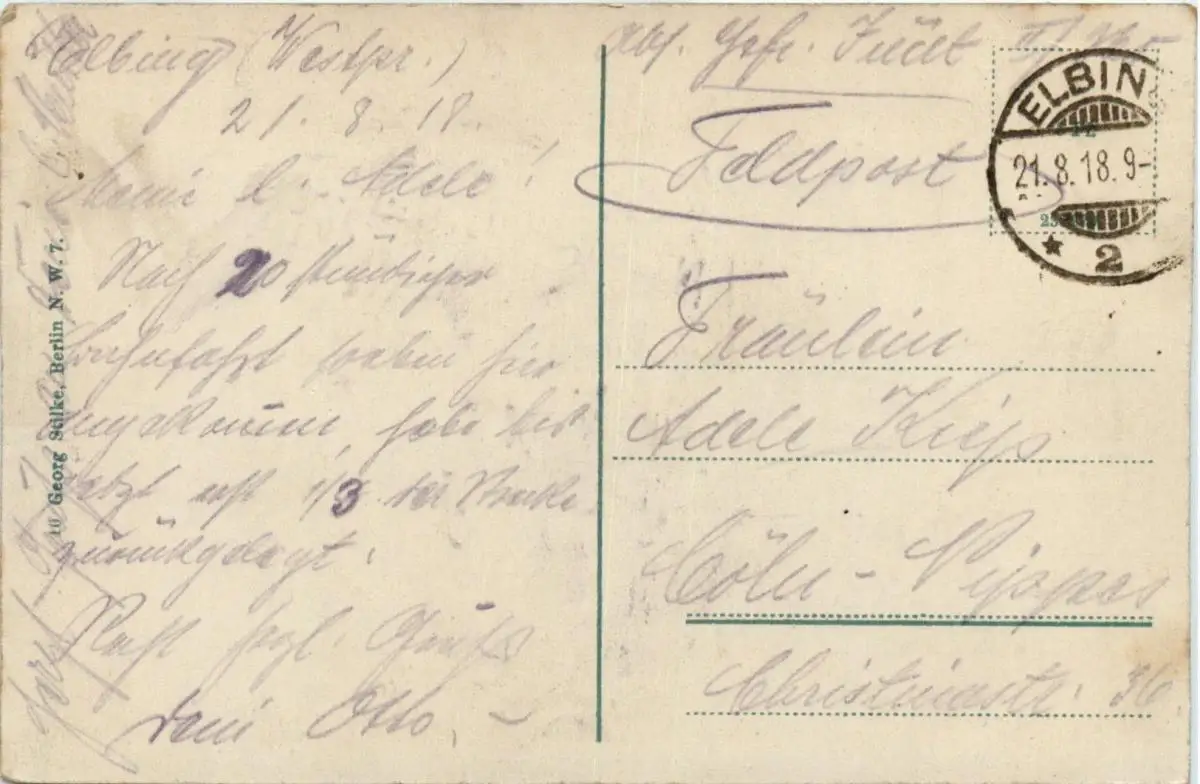 Elbing (Westpr.)
21. 8. 18.
Meine l. Adele!
Nach 20 stündiger
Bahnfahrt soeben hier
angekommen, habe bis
jetzt erst 1/3 der Strecke
zurückgelegt.
Recht hrzl. Grüße
Dein Otto.
10 Georg Stilke, Berlin N. W. 7.
Abs. Gefr.
Feldpost
ELBIN
21.8.18.9-
* 2
Fräulein
Adele
Cöln - Nippes
Christinastr. 36